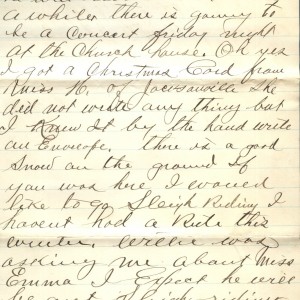 a while. there is going to
be a Concert friday night
at the Church house. Oh yes
I got a Christmas Card from
Miss H. of Jacksonville She
did not write any thing but
I Knew It by the hand write
on Envelope. there is a good
Snow on the ground If
you was here I would
like to go Sleigh Riding I
havent had a Ride this
winter. Willie was
asking me about Miss
Emma I Expect he will